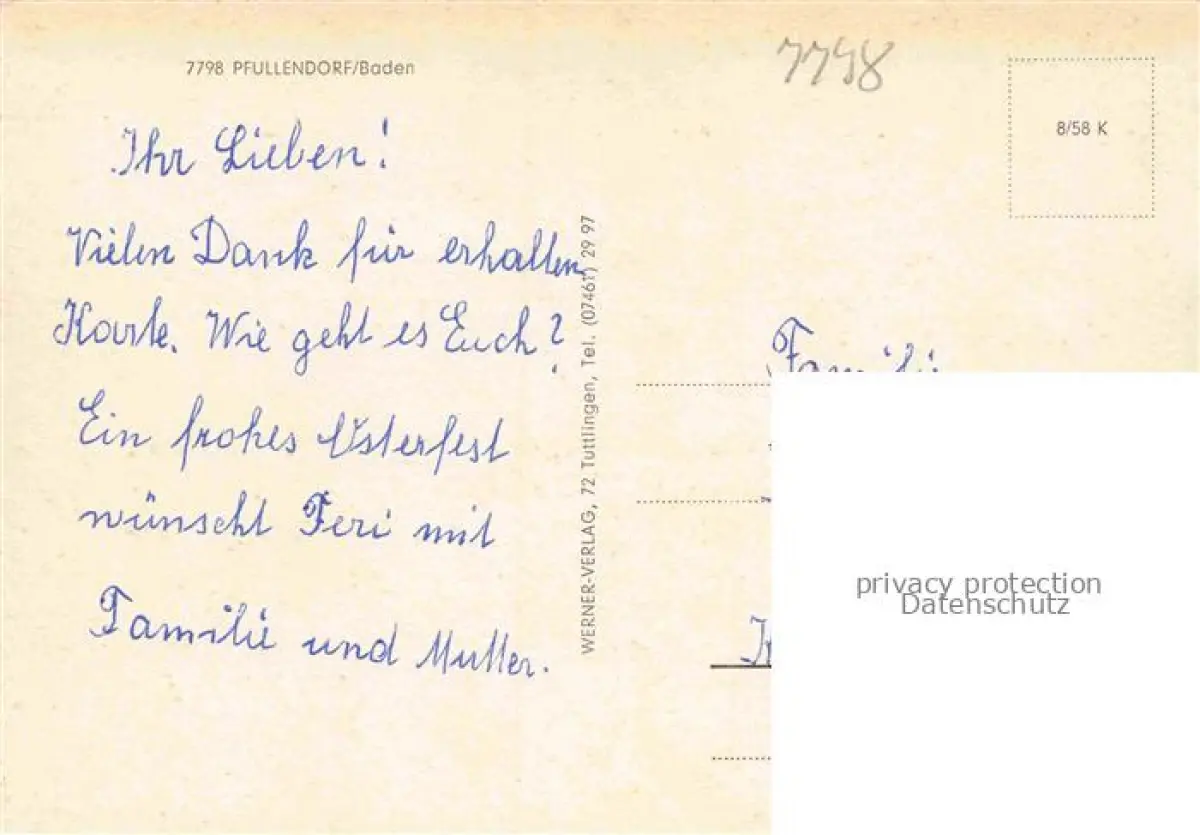 7798 PFULLENDORF/Baden
7798
8/58 K
Ihr Lieben!
Vielen Dank für erhalten
Karte. Wie geht es Euch?
Ein frohes Osterfest
wünscht Feri mit
Familie und Mutter.
WERNER-VERLAG, 72 Tuttlingen, Tel. (07461) 29 97
Familie
privacy protection
Datenschutz